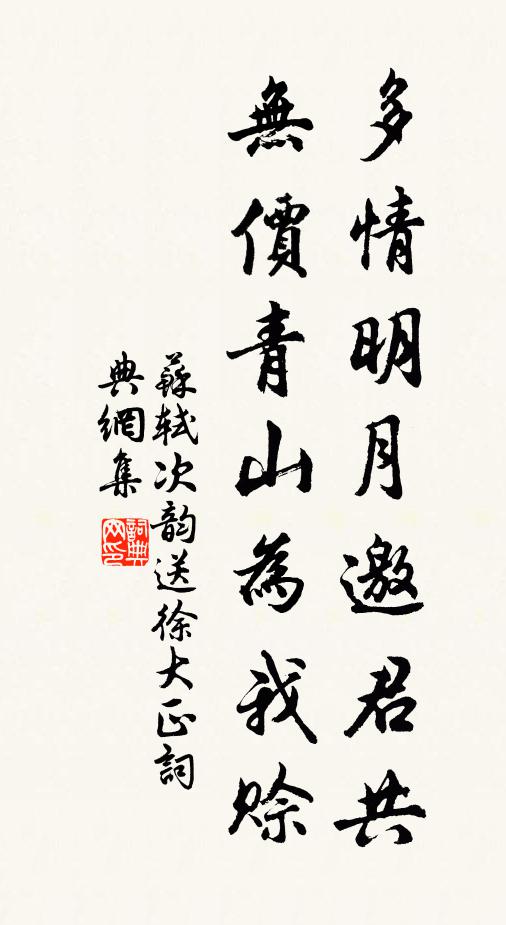 多情明月邀君共
無價青山為我賒
蘇軾次韵送徐大正詞
典網集
詞典
网印